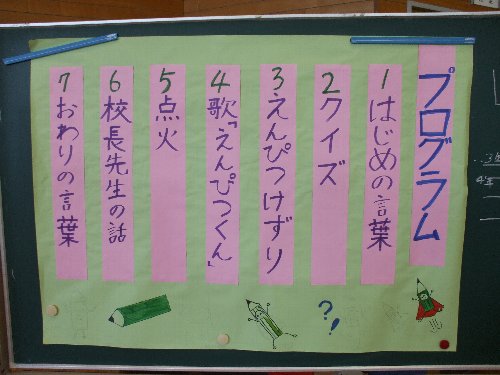 プログラム
1 はじめの言葉
2 クイズ
3 えんぴつけずり
4 歌「えんぴつくん」
5 点火
6 校長先生の話
7 おわりの言葉
?!